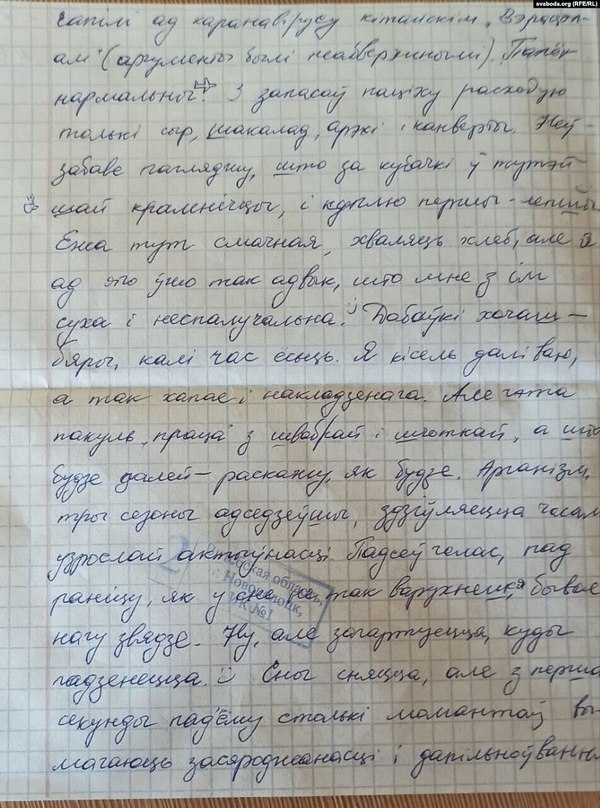 svaboda.org (RFE/RL)
сапілі ад каранавірусу кітайскім „Вэрацэп-
ам" (аргументы былі неабвержнымі). Паток
нармальны. З запасаў паціху расходую
толькі сыр, шакалад, арэхі і канверты. Неў-
забаве пагляджу, што за кубачкі ў тутэй-
шай крамнічцы, і куплю першы-лепшы.
Ежа тут смачная, хваляць хлеб, але я
ад яго ўжо так адвык, што мне з ім
суха і неспалучальна. Дабаўкі хочаш –
бяры, калі час ёсць. Я кісель даліваю,
а так хапае і накладзенага. Але гэта
пакуль „праца" з швабрай і шчоткай, а што
будзе далей – раскажу, як будзе. Арганізм,
тры сезоны адседзеўшы, здзіўляецца часам
узрослай актыўнасці. Падсеў голас, пад
раніцу, як у сне не так варухнешся, бывае
нагу звядзе. Ну, але загартуецца, куды
падзенецца. Сны сняцца, але з перша
секунды пад'ёму столькі момантаў вы-
магаюць засяроджанасці і дапільноўвання
ская область,
Новополоцк,
ИК №1